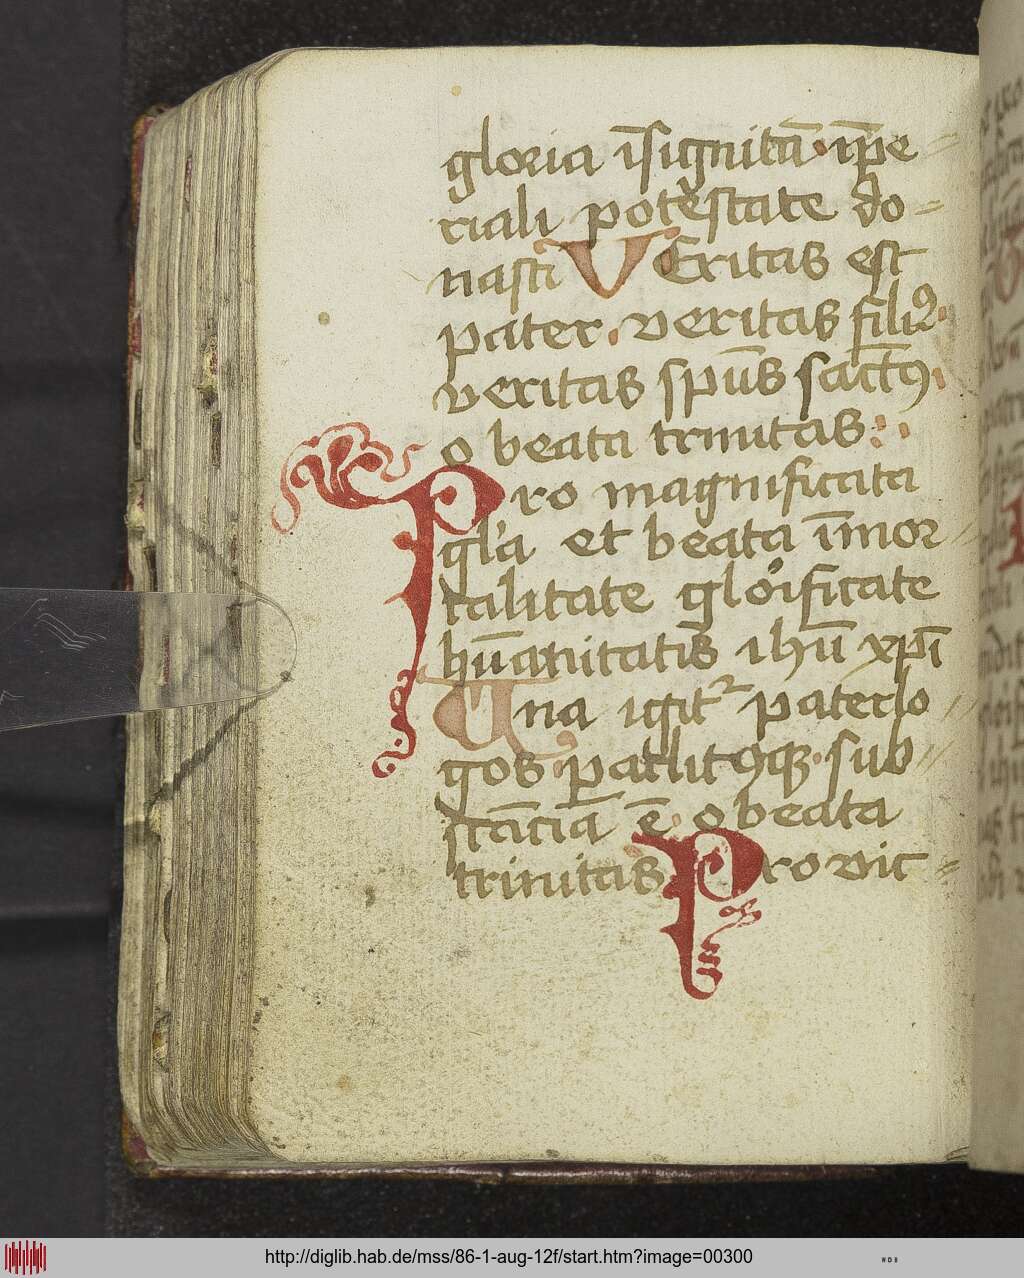 gloria īsignitā. īpe
riali potestate do
nasti VEritas est
pater. veritas filiꝯ.
veritas spūs sāctꝯ.
o beata trinitas:
Pro magnificata
gl'a et beata īmmor
talitate glorificate
hūanitatis ihū xpī
Una igit2 pater lo
gos paclitꝯqꝫ. sub
stācia ē. o beata
trinitas Pro vic
http://diglib.hab.de/mss/86-1-aug-12f/start.htm?image=00300